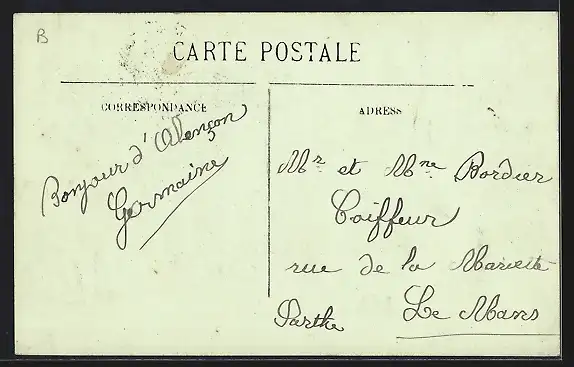 B
CARTE POSTALE
CORRESPONDANCE
ADRESS
Bonjour d'Alençon
Germaine
Mr et Mme Bordier
Coiffeur
rue de la Mariette
Le Mans
Sarthe